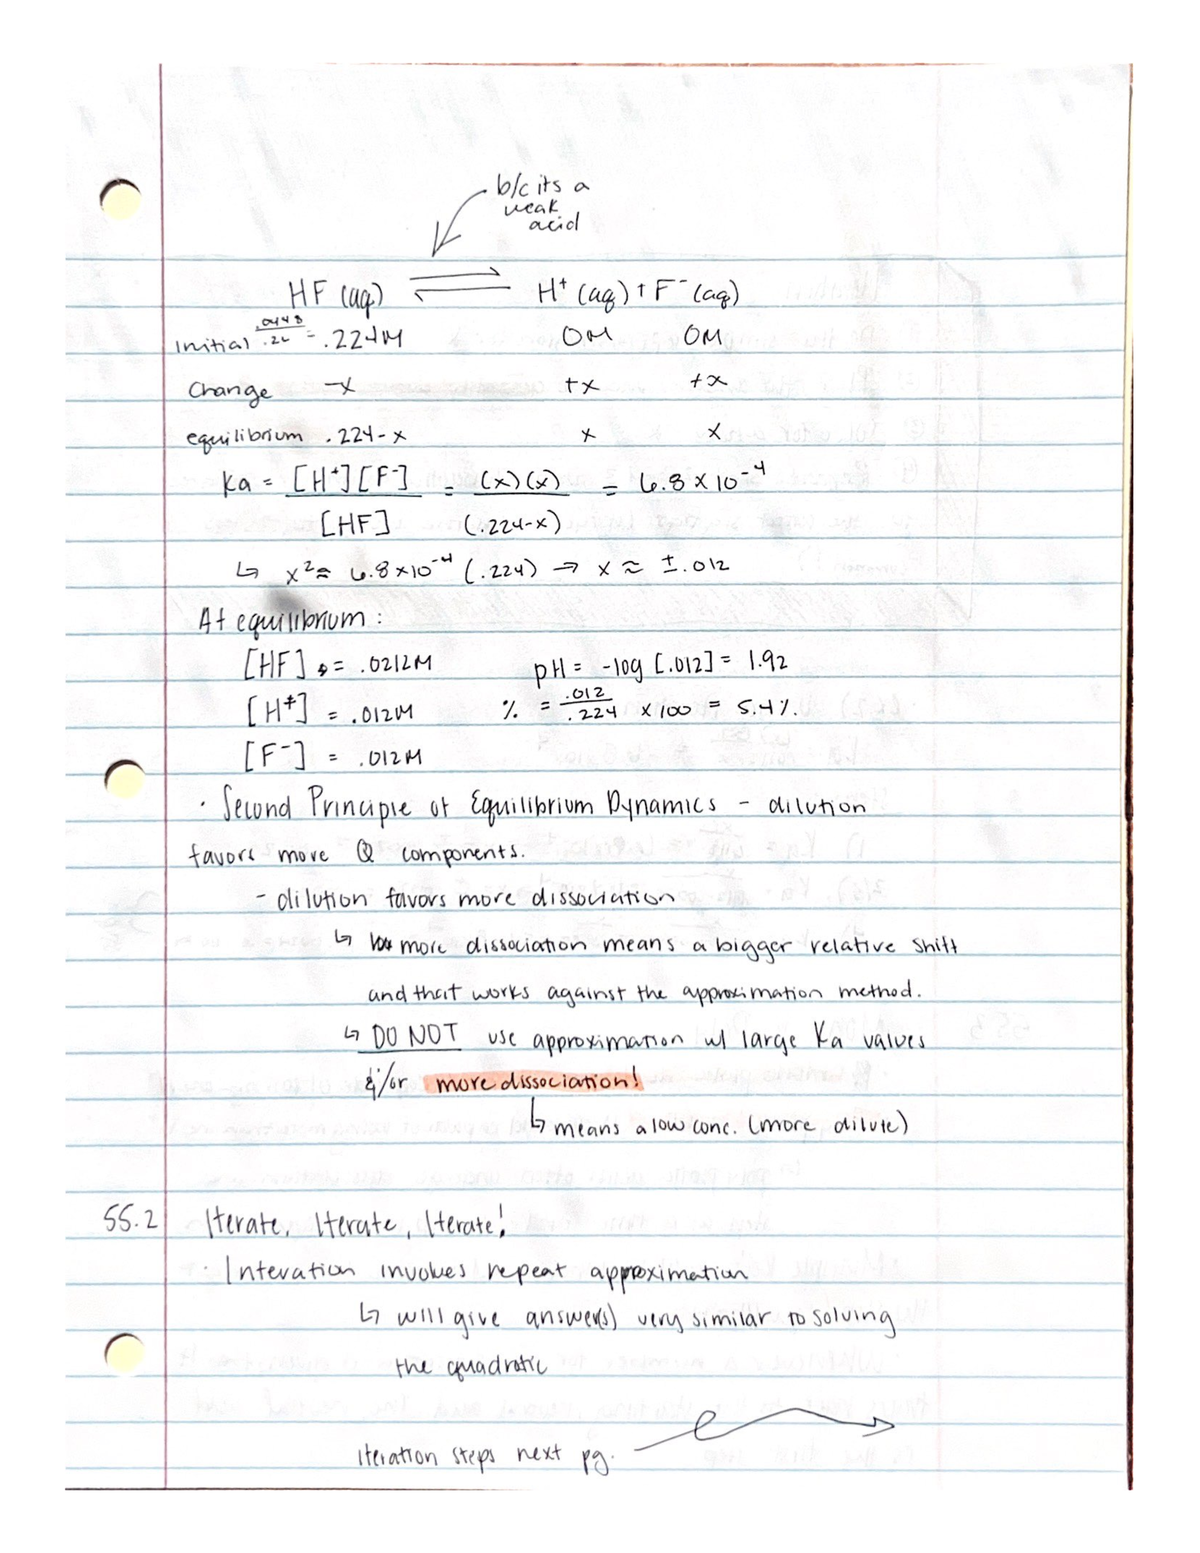 b/c its a
weak
acid
HF (aq) ⇌ H⁺ (aq) + F⁻ (aq)
Initial .0448/.20 = .224M 0M 0M
Change -x +x +x
equilibrium .224-x x x
Ka = [H⁺][F⁻]/[HF] = (x)(x)/(.224-x) = 6.8 x 10⁻⁴
↳ x² ≈ 6.8x10⁻⁴ (.224) → x ≈ ±.012
At equilibrium:
[HF] = .0212M pH = -log [.012] = 1.92
[H⁺] = .012M % = .012/.224 x 100 = 5.4%
[F⁻] = .012M
· Second Principle of Equilibrium Dynamics - dilution
favors more Q components.
- dilution favors more dissociation
↳ more dissociation means a bigger relative shift
and that works against the approximation method.
↳ DO NOT use approximation w/ large Ka values
&/or more dissociation!
↳ means a low conc. (more dilute)
55.2 Iterate, Iterate, Iterate!
· Interation involves repeat approximation
↳ will give answer(s) very similar to solving
the quadratic
iteration steps next pg.